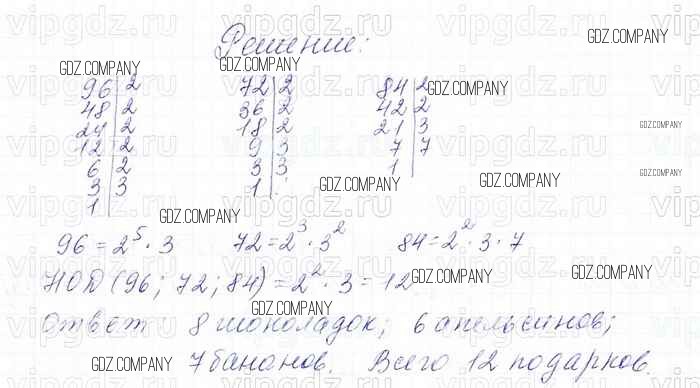 Решение:
96 | 2   72 | 2   84 | 2
48 | 2   36 | 2   42 | 2
24 | 2   18 | 2   21 | 3
12 | 2   9 | 3   7 | 7
6 | 2   3 | 3   1 |
3 | 3   1 |
1 |
96 = 2⁵ · 3   72 = 2³ · 3²   84 = 2² · 3 · 7
НОД (96; 72; 84) = 2² · 3 = 12
Ответ 8 шоколадок; 6 апельсинов;
7 бананов. Всего 12 подарков.
GDZ.COMPANY
GDZ.COMPANY
GDZ.COMPANY
GDZ.COMPANY
GDZ.COMPANY
GDZ.COMPANY
GDZ.COMPANY
GDZ.COMPANY
GDZ.COMPANY
GDZ.COMPANY
GDZ.COMPANY
GDZ.COMPANY
GDZ.COMPANY
GDZ.COMPANY
vipgdz.ru vipgdz.ru vipgdz.ru vipgdz.ru